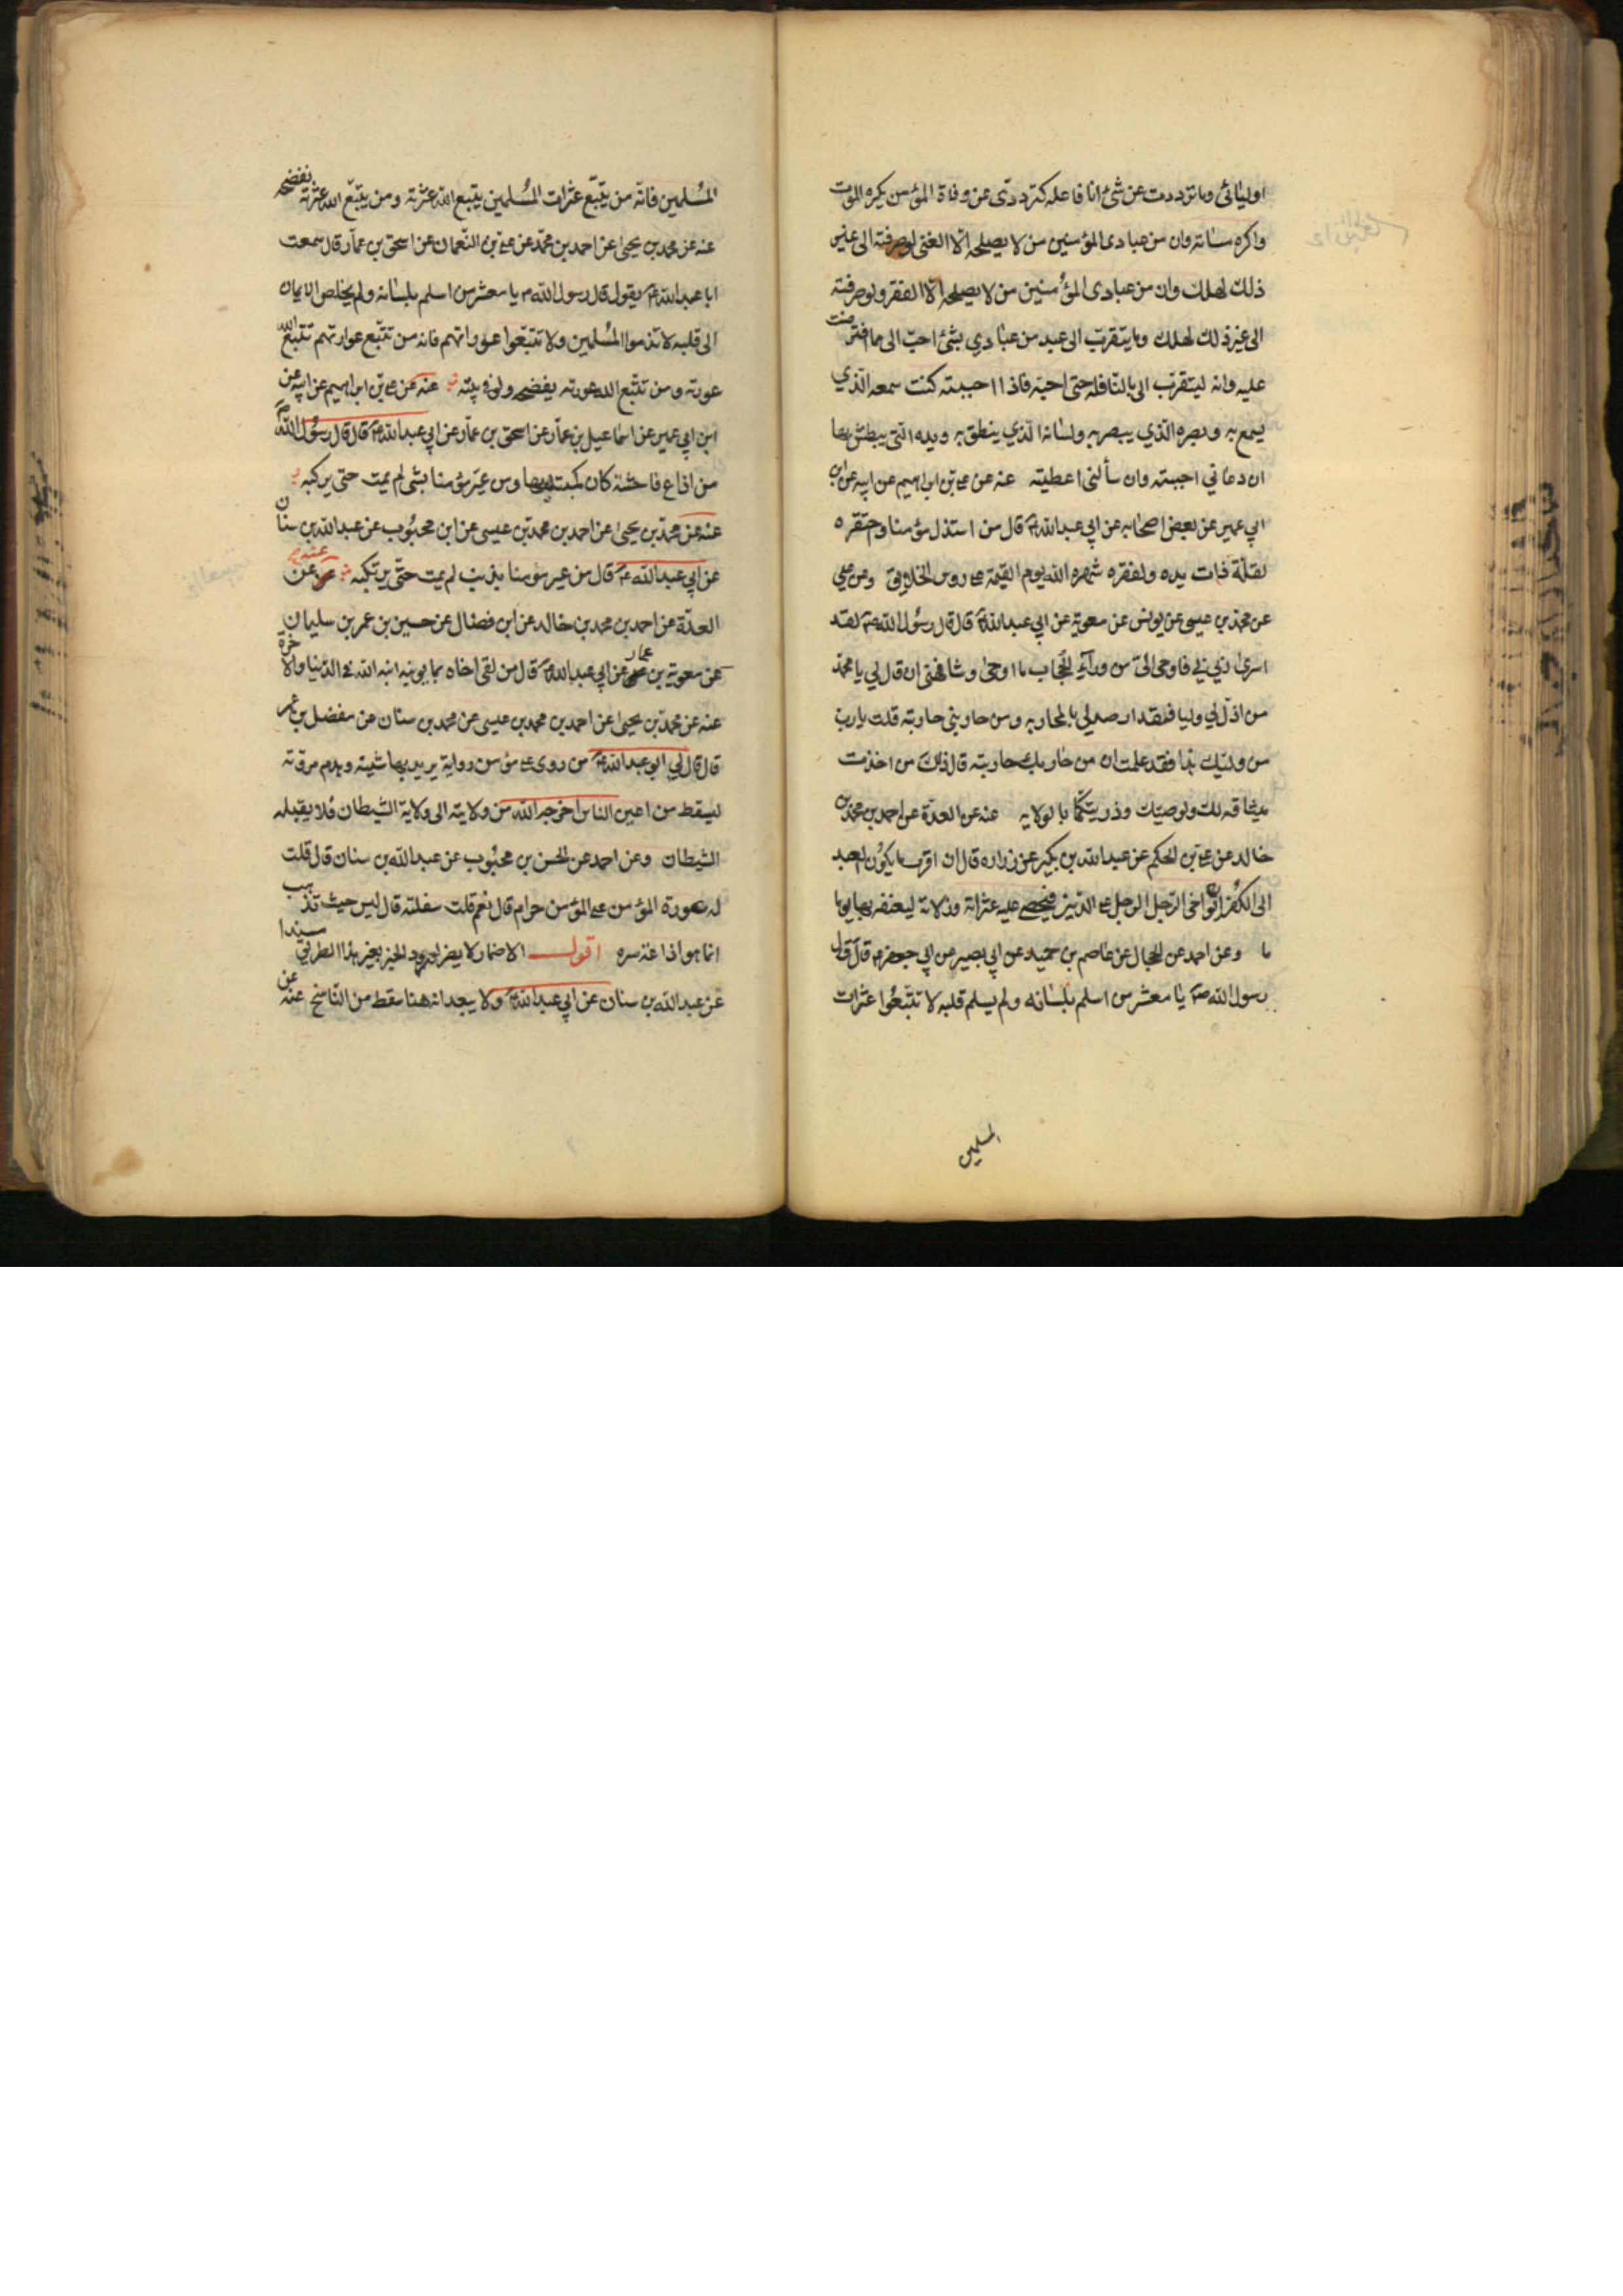 اوليائي وما ترددت عن شئ انا فاعله كترددى عن وفاة المؤمن يكره الموت
واكره مساءته وان من عبادى المؤمنين من لا يصلحه الا الغنى لو صرفته الى غير
ذلك لهلك وان من عبادى المؤمنين من لا يصلحه الا الفقر ولو صرفته
الى غير ذلك لهلك وما يتقرب الى عبد من عبادي بشئ احب الى مما افترضت
عليه وانه ليتقرب الى بالنافلة حتى احبه فاذا احببته كنت سمعه الذي
يسمع به وبصره الذي يبصر به ولسانه الذي ينطق به ويده التي يبطش بها
ان دعاني اجبته وان سألني اعطيته عنه عن على بن ابراهيم عن ابيه عن ابن
ابي عمير عن بعض اصحابه عن ابي عبد الله ع قال من استذل مؤمنا واحتقره
لقلة ذات يده ولفقره شهره الله يوم القيمة على روس الخلايق وعن علي
عن محمد بن عيسى عن يونس عن معوية عن ابي عبد الله ع قال قال رسول الله ص لقد
اسرى ربي بي فاوحى الى من ورآء الحجاب ما اوحى وشافهني ان قال لي يا محمد
من اذل لي وليا فقد ارصد لي بالمحاربه ومن حاربني حاربته قلت يا رب
من وليك هذا فقد علمت ان من حاربك حاربته قال ذلك من اخذت
ميثاقه لك ولوصيك وذريتكما بالولايه عنه عن العدة عن احمد بن محمد بن
خالد عن على بن الحكم عن عبد الله بن بكير عن زراره قال ان اقرب ما يكون العبد
الى الكفر ان يواخى الرجل الرجل على الدين فيحصى عليه عثراته وزلاته ليعنفه بها يوما
ما وعن احمد عن الحجال عن عاصم بن حميد عن ابي بصير عن ابي جعفر ع قال قال
رسول الله ص يا معشر من اسلم بلسانه ولم يسلم قلبه لا تتبعوا عثرات
المسلمين
المسلمين فانه من يتبع عثرات المسلمين يتبع الله عثرته ومن يتبع الله عثرته يفضحه
عنه عن محمد بن يحيى عن احمد بن محمد عن على بن النعمان عن اسحق بن عمار قال سمعت
ابا عبد الله ع يقول قال رسول الله ص يا معشر من اسلم بلسانه ولم يخلص الايمان
الى قلبه لا تذموا المسلمين ولا تتبعوا عوراتهم فانه من تتبع عوارتهم تتبع الله
عورته ومن تتبع الله عورته يفضحه ولو في بيته عنه عن على بن ابراهيم عن ابيه عن
ابن ابي عمير عن اسماعيل بن عمار عن اسحق بن عمار عن ابي عبد الله ع قال قال رسول الله ص
من اذاع فاحشة كان كمبتديها ومن عير مؤمنا بشى لم يمت حتى يركبه
عنه عن محمد بن يحيى عن احمد بن محمد بن عيسى عن ابن محبوب عن عبد الله بن سنان
عن ابي عبد الله ع قال من عير مؤمنا بذنب لم يمت حتى يرتكبه عنه عن
العدة عن احمد بن محمد بن خالد عن ابن فضال عن حسين بن عمر بن سليمان
عن معوية بن عمار عن ابي عبد الله ع قال من لقى اخاه بما يونبه انبه الله في الدنيا والاخرة
عنه عن محمد بن يحيى عن احمد بن محمد بن عيسى عن محمد بن سنان عن مفضل بن عمر
قال قال لي ابو عبد الله ع من روى على مؤمن رواية يريد بها شينه وهدم مروته
ليسقط من اعين الناس اخرجه الله من ولايته الى ولاية الشيطان فلا يقبله
الشيطان وعن احمد عن الحسن بن محبوب عن عبد الله بن سنان قال قلت
له عورة المؤمن على المؤمن حرام قال نعم قلت سفلته قال ليس حيث تذهب
انما هو اذاعة سره اقول الاضمار لا يضر لورود الخبر بغير هذا الطريق مسندا
عن عبد الله بن سنان عن ابي عبد الله ع ولا يبعد انه هنا سقط من الناسخ عنه عن